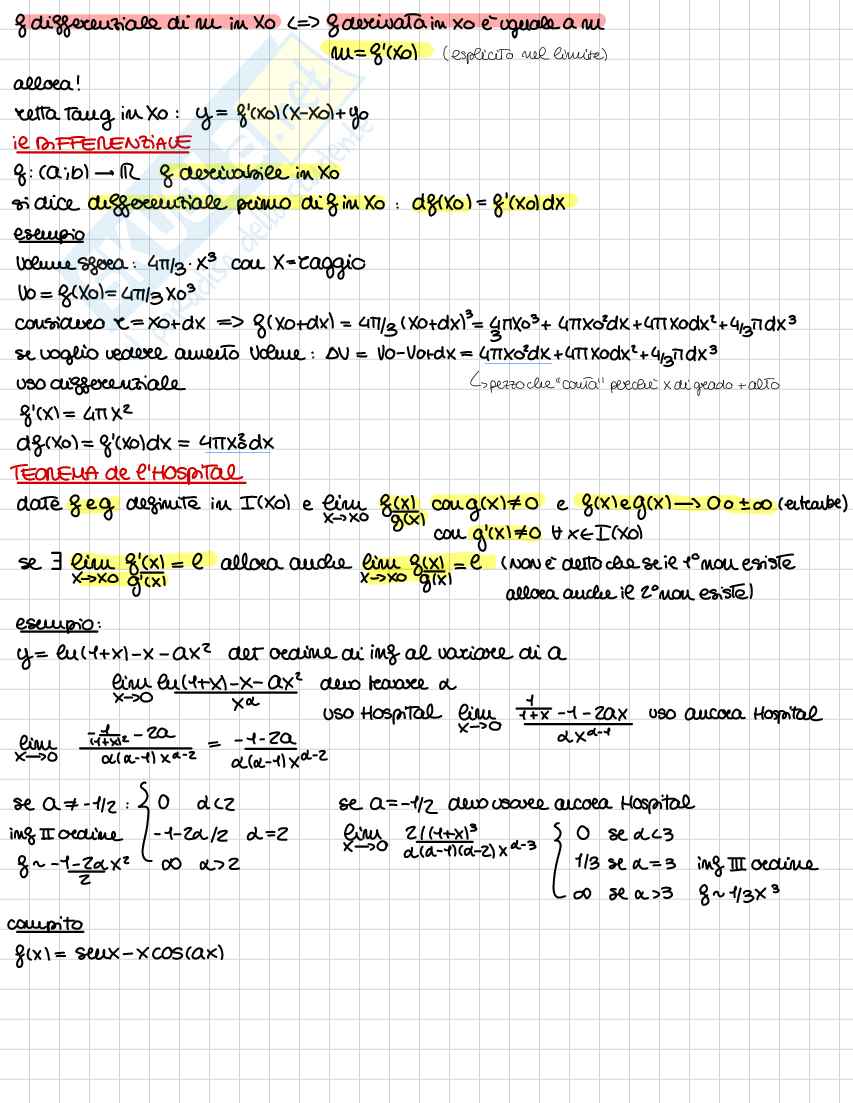 f differenziale di m in x0 <=> f derivata in x0 è uguale a m
m = f'(x0) (esplicito nel limite)
allora!
retta Tang in x0 : y = f'(x0)(x-x0)+y0
il DIFFERENZIALE
f: (a;b) → R f derivabile in x0
si dice differenziale primo di f in x0 : df(x0) = f'(x0)dx
esempio
Volume sfera : 4π/3 · x³ con x=raggio
V0 = f(x0) = 4π/3 x0³
considero r = x0+dx => f(x0+dx) = 4π/3 (x0+dx)³ = 4/3 πx0³ + 4πx0²dx + 4πx0dx² + 4/3 πdx³
se voglio vedere aumento Volume : ΔV = V0-V0+dx = 4πx0²dx + 4πx0dx² + 4/3 πdx³
uso differenziale ↳ pezzo che "conta" perché x di grado + alto
f'(x) = 4πx²
df(x0) = f'(x0)dx = 4πx0²dx
TEOREMA de l'HOSPITAL
date f e g definite in I(x0) e lim x→x0 f(x)/g(x) con g(x)≠0 e f(x) e g(x) → 0 o ±∞ (entrambe)
con g'(x)≠0 ∀x∈I(x0)
se ∃ lim x→x0 f'(x)/g'(x) = l allora anche lim x→x0 f(x)/g(x) = l (non è detto che se il 1° non esiste
allora anche il 2° non esiste)
esempio:
y = ln(1+x)-x-ax² det ordine di inf al variare di a
lim x→0 ln(1+x)-x-ax²/x^α devo trovare α
uso Hospital lim x→0 1/1+x -1-2ax/αx^α-1 uso ancora Hospital
lim x→0 -1/(1+x)² -2a/α(α-1)x^α-2 = -1-2a/α(α-1)x^α-2
se a ≠ -1/2 : { 0 α<2 se a=-1/2 devo usare ancora Hospital
inf II ordine -1-2a/2 α=2 lim x→0 2/(1+x)³/α(α-1)(α-2)x^α-3 { 0 se α<3
f ~ -1-2a/2 x² ∞ α>2 1/3 se α=3 inf III ordine
∞ se α>3 f ~ 1/3x³
compito
f(x) = senx-xcos(ax)
SKUOLA.net